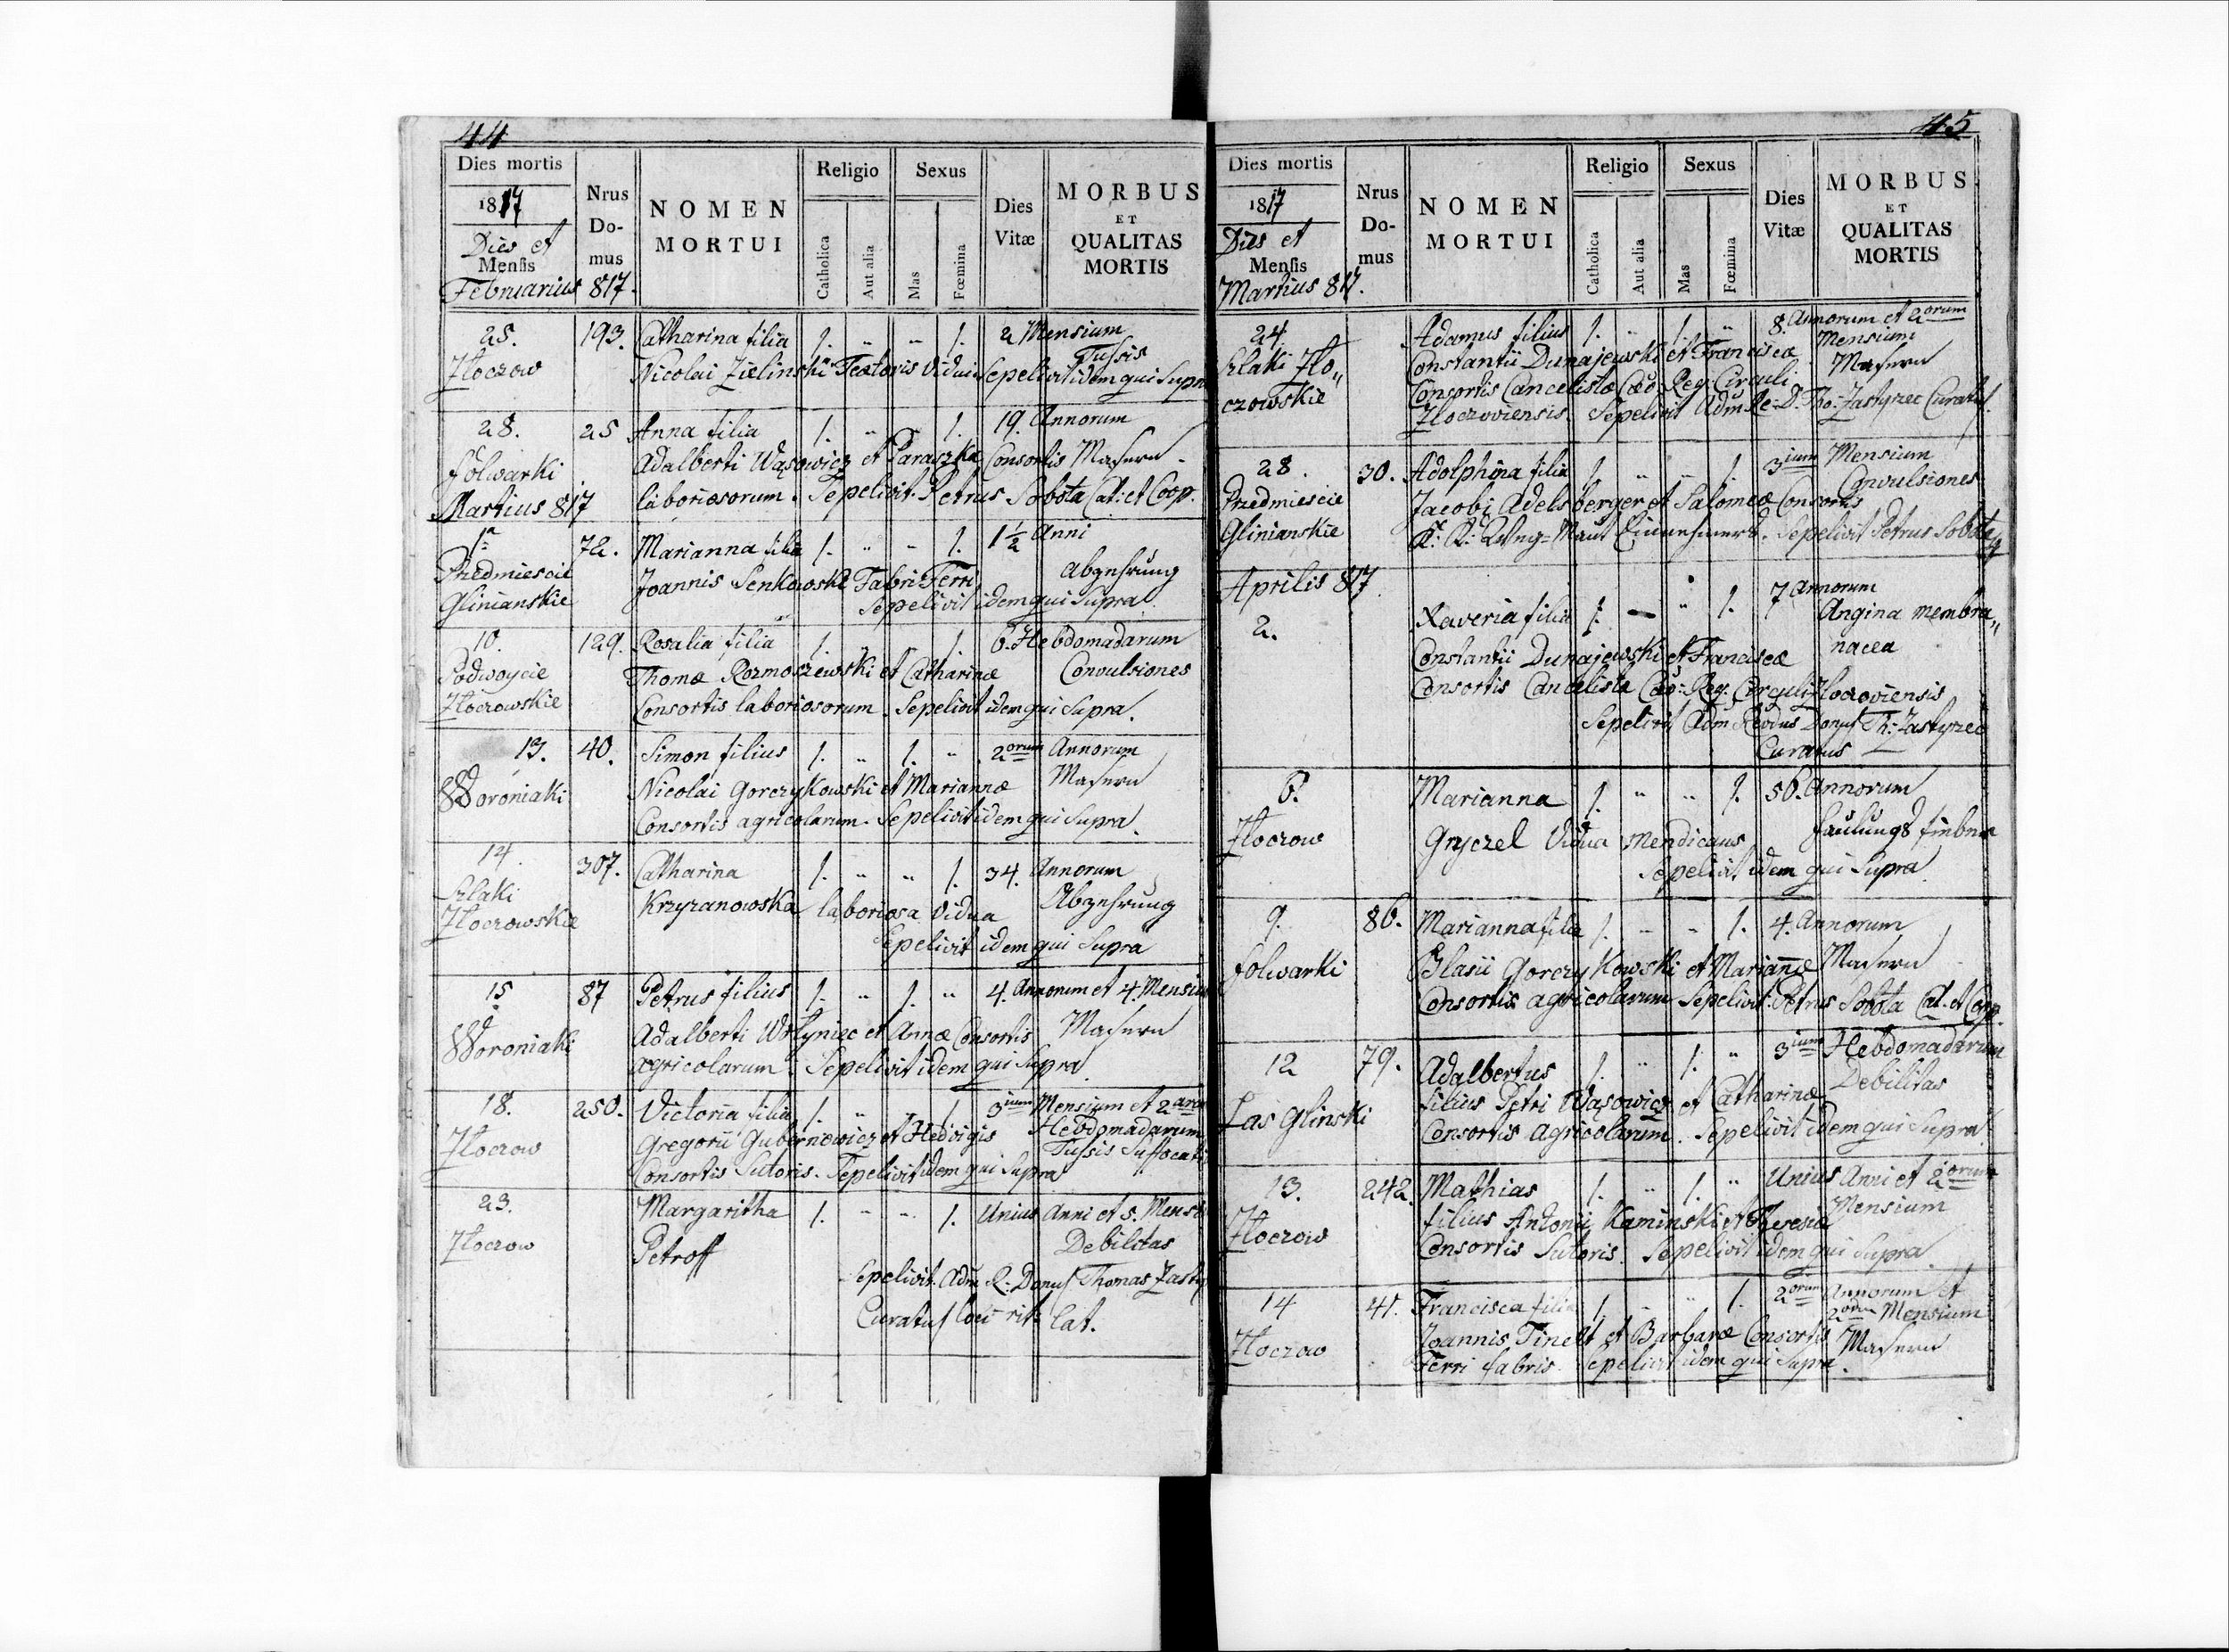 44
Dies mortis
1817
Dies et
Mensis
Februarius 817.
Nrus
Do-
mus
NOMEN
MORTUI
Religio
Catholica
Aut alia
Sexus
Mas
Fœmina
Dies
Vitæ
MORBUS
ET
QUALITAS
MORTIS
25. 193. Catharina filia 1. " " 1. 2 Mensium
Złoczow Nicolai Zielinski Textoris Vidui Sepelivit idem qui Supra
Tussis
28. 25 Anna filia 1. " " 1. 19. Annorum
folwarki Adalberti Wąsowicz et Paraszka Consortis Masern
Martius 817 laboriosorum. Sepelivit Petrus Sobota Cat: et Coop.
1a 72. Marianna filia 1. " " 1. 1½ Anni
Przedmiescie Joannis Senkowski Fabri Ferri Abzehrung
Glinianskie Sepelivit idem qui Supra.
10. 129. Rosalia filia 1. " " 1. 6. Hebdomadarum
Podwoycie Thomæ Rozmoszewski et Catharinæ Convulsiones
Złoczowskie Consortis laboriosorum. Sepelivit idem qui Supra.
13. 40. Simon filius 1. " 1. " 2orum Annorum
Woroniaki Nicolai Gorczykowski et Mariannæ Masern
Consortis agricolarum. Sepelivit idem qui Supra.
14. 307. Catharina 1. " " 1. 34. Annorum
Szlaki Krzyzanowska laboriosa Vidua Abzehrung
Złoczowskie Sepelivit idem qui Supra
15 87 Petrus filius 1. " 1. " 4. Annorum et 4. Mensiu
Woroniaki Adalberti Wołyniec et Annæ Consortis Masern
agricolarum. Sepelivit idem qui Supra
18. 250. Victoria filia 1. " " 1. 3ium Mensium et 2arum
Złoczow Gregorii Gubernowicz et Hedvigis Hebdomadarum
Consortis Sutoris. Sepelivit idem qui Supra Tussis Suffocati
23. Margaritha 1. " " 1. Unius Anni et 5. Mens
Złoczow Petroff Debilitas
Sepelivit Adm R: Donus Thomas Zasty
Curatus loci rit: lat.
45
Dies mortis
1817
Dies et
Mensis
Martius 817.
Nrus
Do-
mus
NOMEN
MORTUI
Religio
Catholica
Aut alia
Sexus
Mas
Fœmina
Dies
Vitæ
MORBUS
ET
QUALITAS
MORTIS
24. Adamus filius 1. " 1. " 8. Annorum et 2orum
Szlaki Zło„ Constantii Dunajewski et Franciscæ Mensium
czowskie Consortis Cancelistæ Cæs. Reg. Circuli Masern
Złoczoviensis. Sepelivit Adm Re. D. Tho: Zastyrzec Curatus.
28. 30. Adolphina filia 1. " " 1. 3ium Mensium
Przedmiescie Jacobi Adelsberger et Salomeæ Consortis Convulsiones
Glinianskie K: K: Weg=Maut Einnehmers. Sepelivit Petrus Sobota
Aprilis 817
2. Xaveria filia 1. — " 1. 7 Annorum
Angina membra„
Constantii Dunajewski et Franciscæ nacea
Consortis Cancelistæ Cæs: Reg: Circuli Złoczoviensis
Sepelivit Adm Revdus Donus Th: Zastyrzec
Curatus
6. Marianna 1. " " 1. 56. Annorum
Złoczow Gryczel Vidua Mendicans Faulungs fieber
Sepelivit idem qui Supra
9. 86. Marianna filia 1. " " 1. 4. Annorum
folwarki Blasii Gorczykowski et Mariannæ Masern
Consortis agricolarum Sepelivit: Petrus Sobota Cat. et Coop.
12 79. Adalbertus 1. " 1. " 3ium Hebdomadarum
Las Glinski filius Petri Wąsowicz et Catharinæ Debilitas
Consortis agricolarum. Sepelivit idem qui Supra
13. 242. Mathias 1. " 1. " Unius Anni et 2orum
Złoczow filius Antonii Kaminski et Theresiæ Mensium
Consortis Sutoris. Sepelivit idem qui Supra
14 41. Francisca filia 1. " " 1. 2orum Annorum et
2orum Mensium
Złoczow Joannis Tinelt et Barbaræ Consortis Masern
Ferri fabris. Sepelivit idem qui Supra.